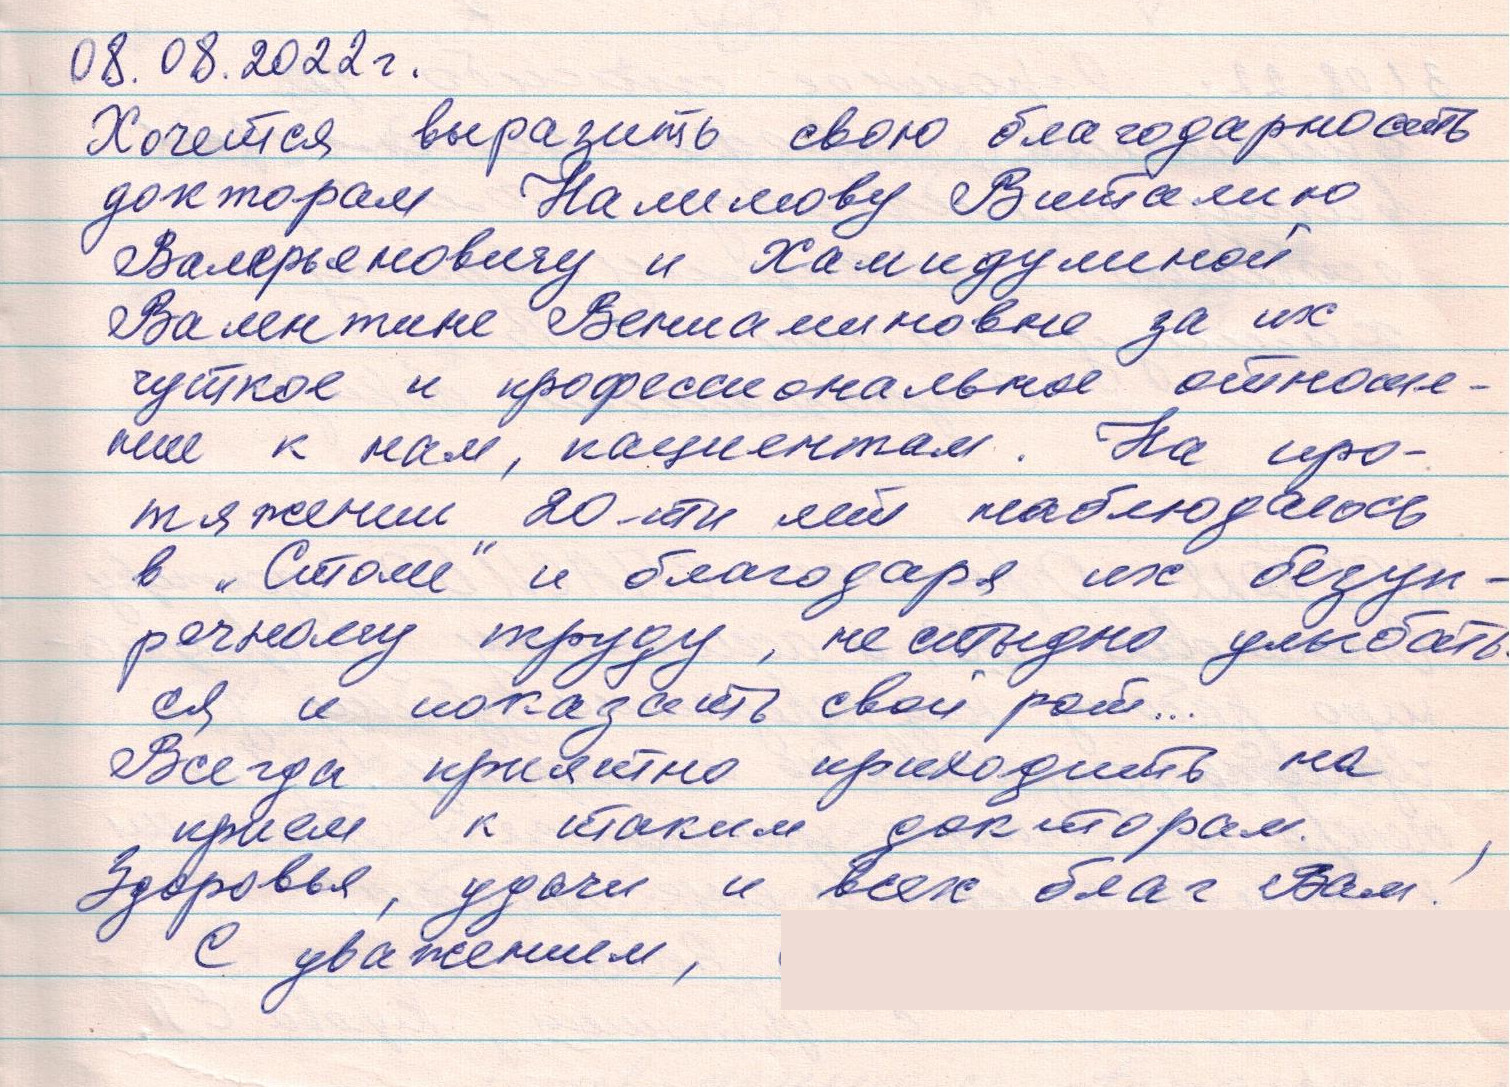 08.08.2022г.
Хочется выразить свою благодарность
докторам Налимову Виталию
Валерьяновичу и Хамидулиной
Валентине Вениаминовне за их
чуткое и профессиональное отноше-
ние к нам, пациентам. На про-
тяжении 20-ти лет наблюдаюсь
в „Стоме" и благодаря их безуп-
речному труду, не стыдно улыбать-
ся и показать свой рот...
Всегда приятно приходить на
прием к таким докторам.
Здоровья, удачи и всех благ Вам!
С уважением,